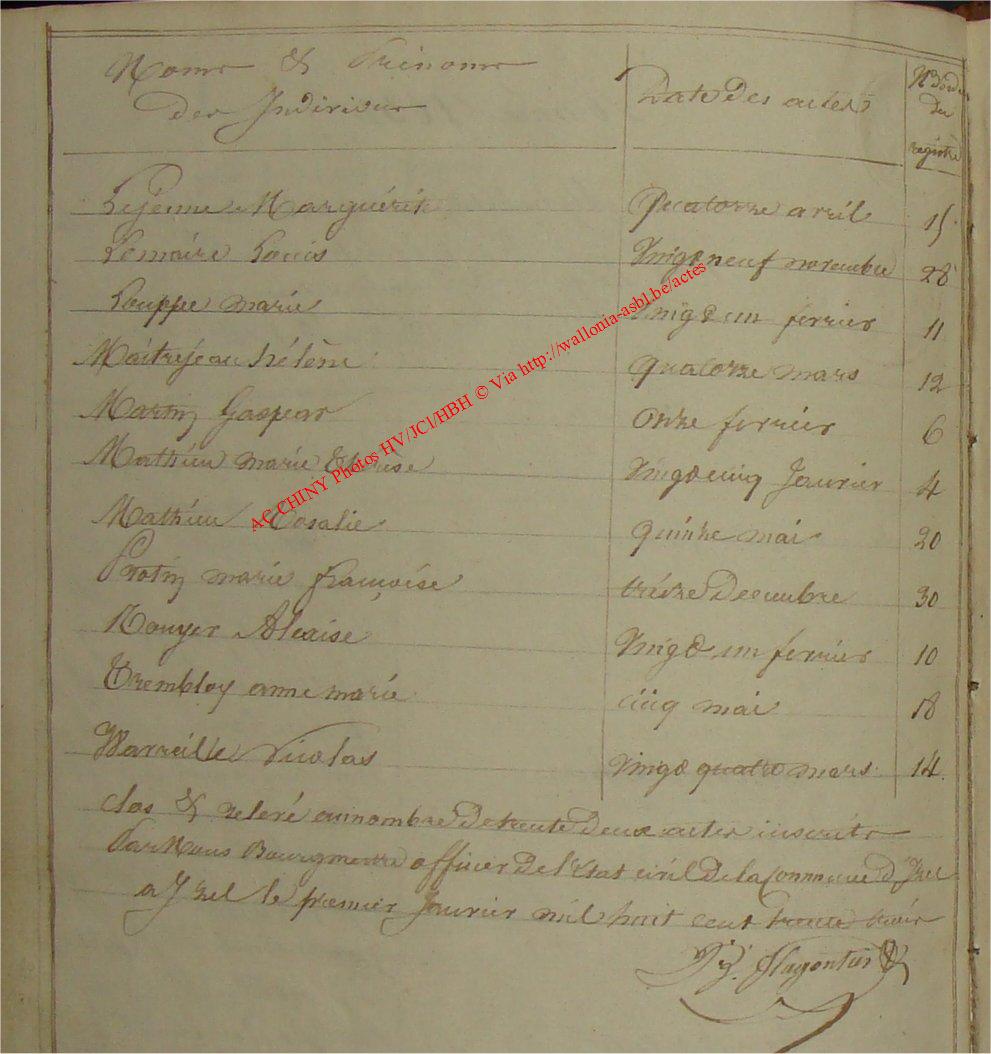 Noms & Prénoms des Individus Date des actes N° d'ordre du registre
Lejeune Marguérite Quatorze avril 15
Lemaire Louis Vingt neuf novembre 28
Louppe marie Vingt un fevrier 11
Maitrejean hélène quatorze mars 12
Martin Gaspear onze fevrier 6
Mathieu marie thérèse Vingt cinq Janvier 4
Mathieu Rosalie quinze mai 20
Protin marie françoise treize Decembre 30
Rouyer Alexise Vingt un fevrier 10
Trembloy anne marie cinq mai 18
Warzeille Nicolas vingt quatre mars 14
clos & relevé au nombre de trente deux actes inscrits
Par Nous Bourgmestre officier De l'Etat civil De la Commune d'Izel
a Izel le premier Janvier mil huit cent trente trois
AC CHINY Photos HV/JCl/HBH © Via http://wallonia-asbl.be/actes